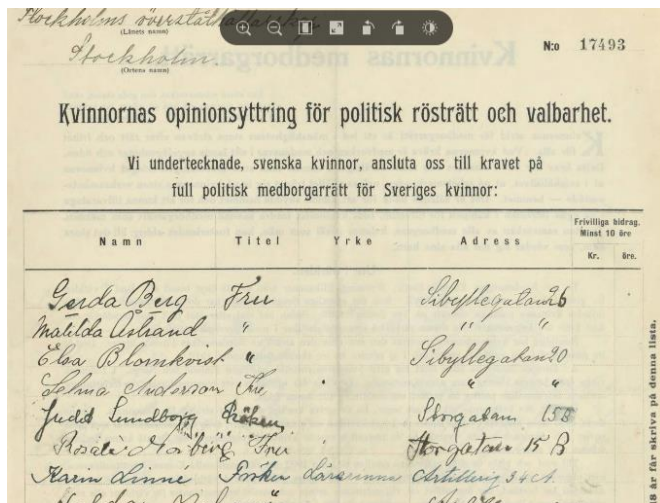 Stockholms överståthållar
(Länets namn)
Stockholm.
(Ortens namn)
N:o 17493
Kvinnornas opinionsyttring för politisk rösträtt och valbarhet.
Vi undertecknade, svenska kvinnor, ansluta oss till kravet på
full politisk medborgarrätt för Sveriges kvinnor:
Namn Titel Yrke Adress Frivilliga bidrag. Minst 10 öre
Kr. öre.
Gerda Berg Fru Sibyllegatan 26
Matilda Åstrand " " "
Elsa Blomkvist " Sibyllegatan 20
Selma Anderson Fru " "
Lundborg Fröken Storgatan 15B
Rosalie Fru Storgatan 15 B
Karin Linné Fröken Lärarinna Artillerig 34 A.
är får skriva på denna lista.